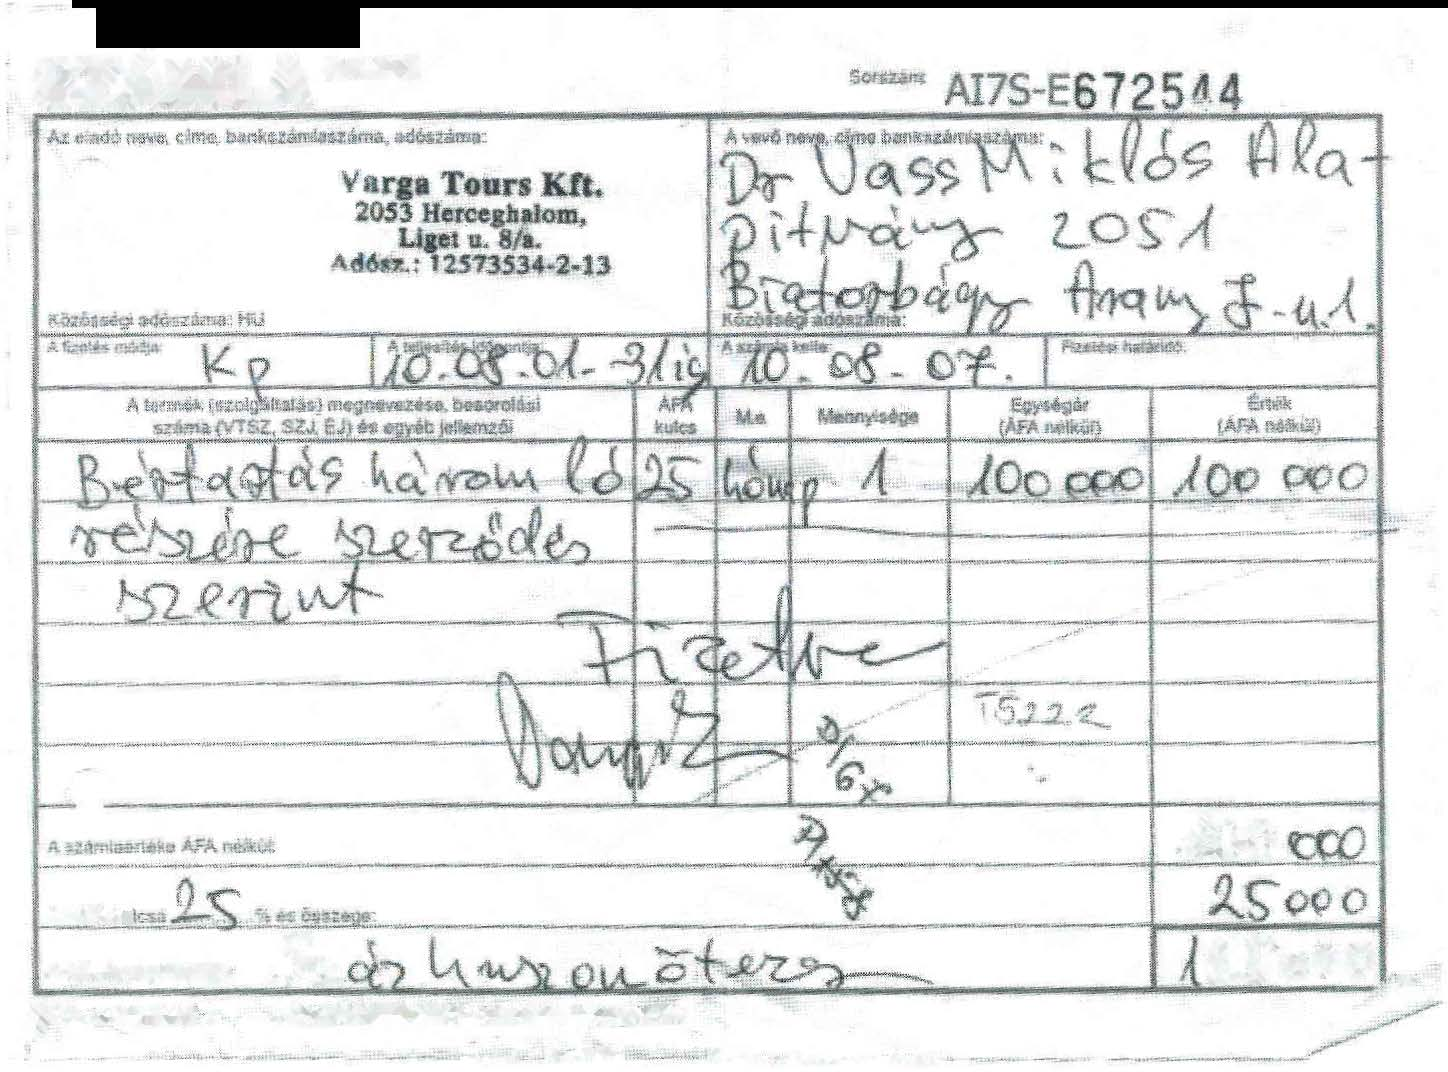 Sorszám: AI7S-E672544
Az eladó neve, címe, bankszámlaszáma, adószáma:
Varga Tours Kft.
2053 Herceghalom,
Liget u. 8/a.
Adósz.: 12573534-2-13
Közösségi adószáma: HU
A vevő neve, címe bankszámlaszáma:
Dr Vass Miklós Ala-
pítvány 2051
Biatorbágy Arany J. u. 1.
Közösségi adószáma:
A fizetés módja: Kp
A teljesítés időpontja: 10.08.01-31ig
A számla kelte: 10.08.07.
Fizetési határidő:
A termék (szolgáltatás) megnevezése, besorolási száma (VTSZ, SZJ, ÉJ) és egyéb jellemzői
ÁFA kulcs
M.e.
Mennyisége
Egységár (ÁFA nélkül)
Érték (ÁFA nélkül)
Bértartás három ló 25 hónap 1 100 000 100 000
részére szerződés
szerint
Fizetve
T5222
A számlaértéke ÁFA nélkül: 000
25 % és összege: 25000
áz huszonötezer 1